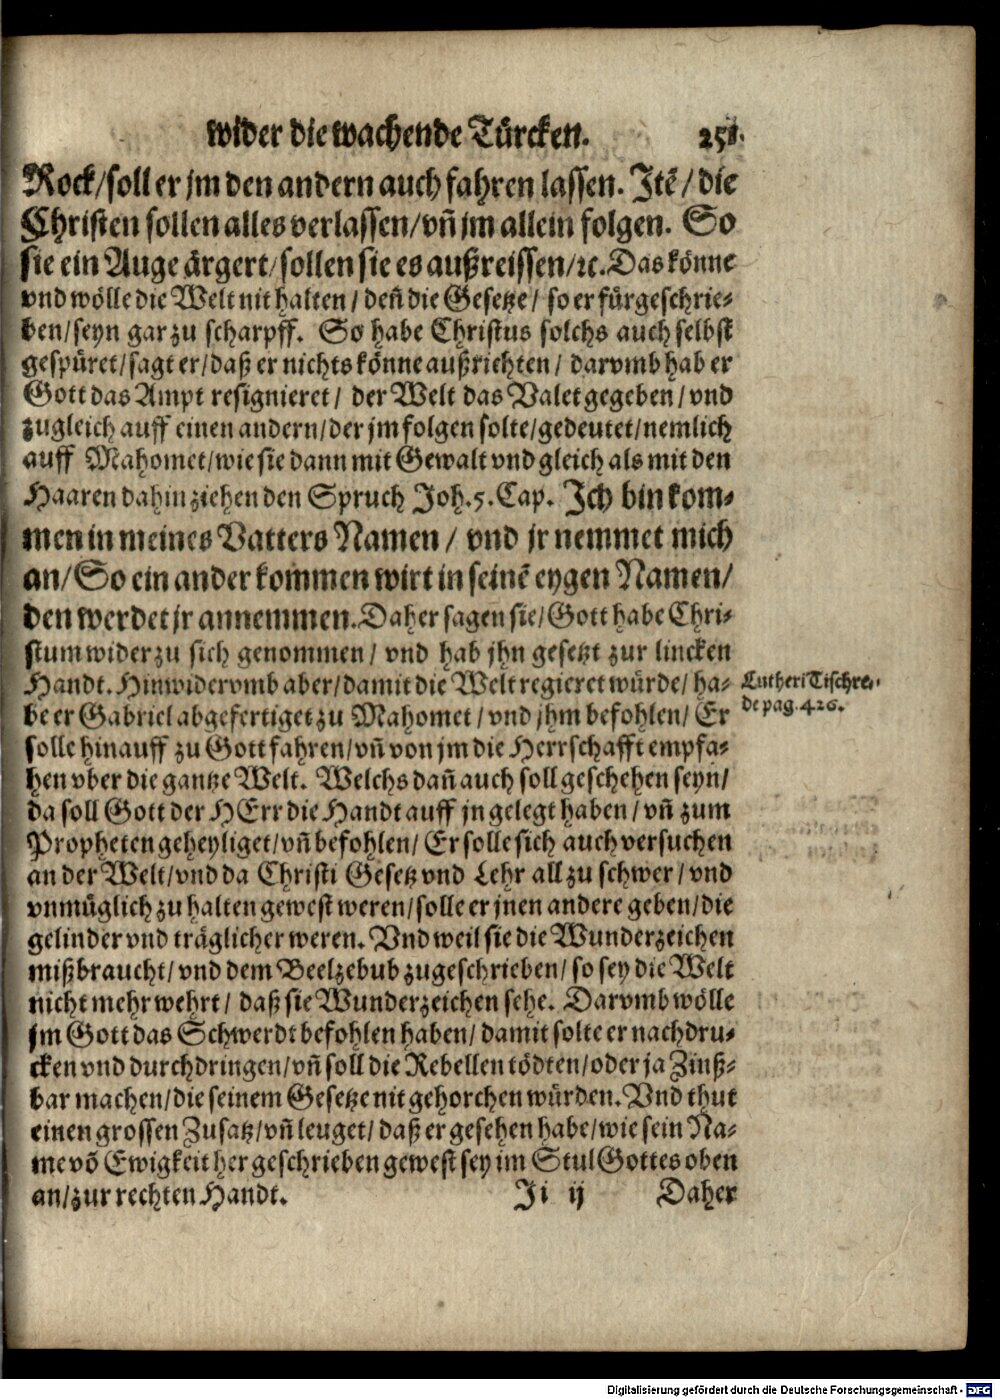 wider die wachende Türcken. 251.
Rock/soll er jm den andern auch fahren lassen. Itē/die
Christen sollen alles verlassen/vñ jm allein folgen. So
sie ein Auge ärgert/sollen sie es außreissen/ꝛc. Das könne
vnd wölle die Welt nit halten/deñ die Gesetze/so er fürgeschrie-
ben/seyn gar zu scharpff. So habe Christus solchs auch selbst
gespüret/sagt er/daß er nichts könne außrichten/darvmb hab er
Gott das Ampt resignieret/der Welt das Valet gegeben/vnd
zugleich auff einen andern/der jm folgen solte/gedeutet/nemlich
auff Mahomet/wie sie dann mit Gewalt vnd gleich als mit den
Haaren dahin ziehen den Spruch Joh.5.Cap. Ich bin kom-
men in meines Vatters Namen/vnd jr nemmet mich
an/So ein ander kommen wirt in seinē eygen Namen/
den werdet jr annemmen. Daher sagen sie/Gott habe Chri-
stum wider zu sich genommen/vnd hab jhn gesetzt zur lincken
Handt. Hinwidervmb aber/damit die Welt regieret würde/ha-
be er Gabriel abgefertiget zu Mahomet/vnd jhm befohlen/Er
solle hinauff zu Gott fahren/vñ von jm die Herrschafft empfa-
hen vber die gantze Welt. Welchs dañ auch soll geschehen seyn/
da soll Gott der HErr die Handt auff jn gelegt haben/vñ zum
Propheten geheyliget/vñ befohlen/Er solle sich auch versuchen
an der Welt/vnd da Christi Gesetz vnd Lehr all zu schwer/vnd
vnmüglich zu halten gewest weren/solle er jnen andere geben/die
gelinder vnd träglicher weren. Vnd weil sie die Wunderzeichen
mißbraucht/vnd dem Beelzebub zugeschrieben/so sey die Welt
nicht mehr wehrt/daß sie Wunderzeichen sehe. Darvmb wölle
jm Gott das Schwerdt befohlen haben/damit solte er nachdru-
cken vnd durchdringen/vñ soll die Rebellen tödten/oder ja Zinß-
bar machen/die seinem Gesetze nit gehorchen würden. Vnd thut
einen grossen Zusatz/vñ leuget/daß er gesehen habe/wie sein Na-
me vō Ewigkeit her geschrieben gewest sey im Stul Gottes oben
an/zur rechten Handt.
Ji ij Daher
Lutheri Tischre-
de pag. 426.
Digitalisierung gefördert durch die Deutsche Forschungsgemeinschaft - DFG